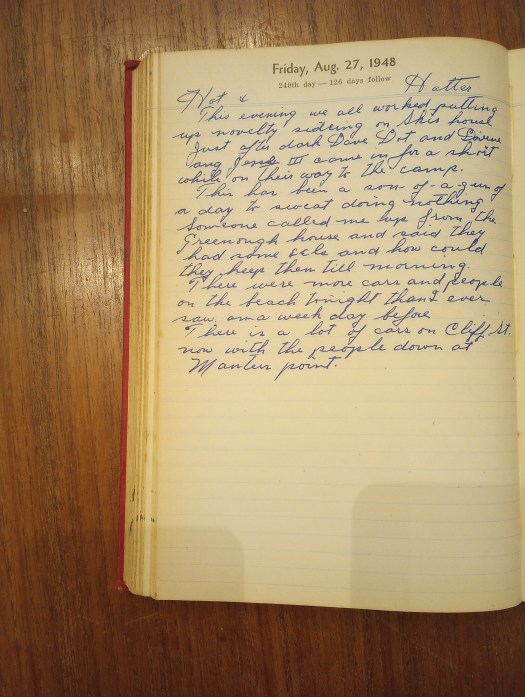 Friday, Aug. 27, 1948
240th day — 126 days follow
Hot & Hotter
This evening we all worked putting
up novelty sideing on Skis house
Just after dark Dave Dot and
and Jene III came in for a short
while on their way to the camp.
This has been a son-of-a-gun of
a day to sweat doing nothing
Someone called me up from the
Greenough house and said they
had some eels and how could
they keep them till morning.
There were more cars and people
on the beach tonight than I ever
saw on a week day before
There is a lot of cars on Cliff St.
now with the people down at
Manters point.